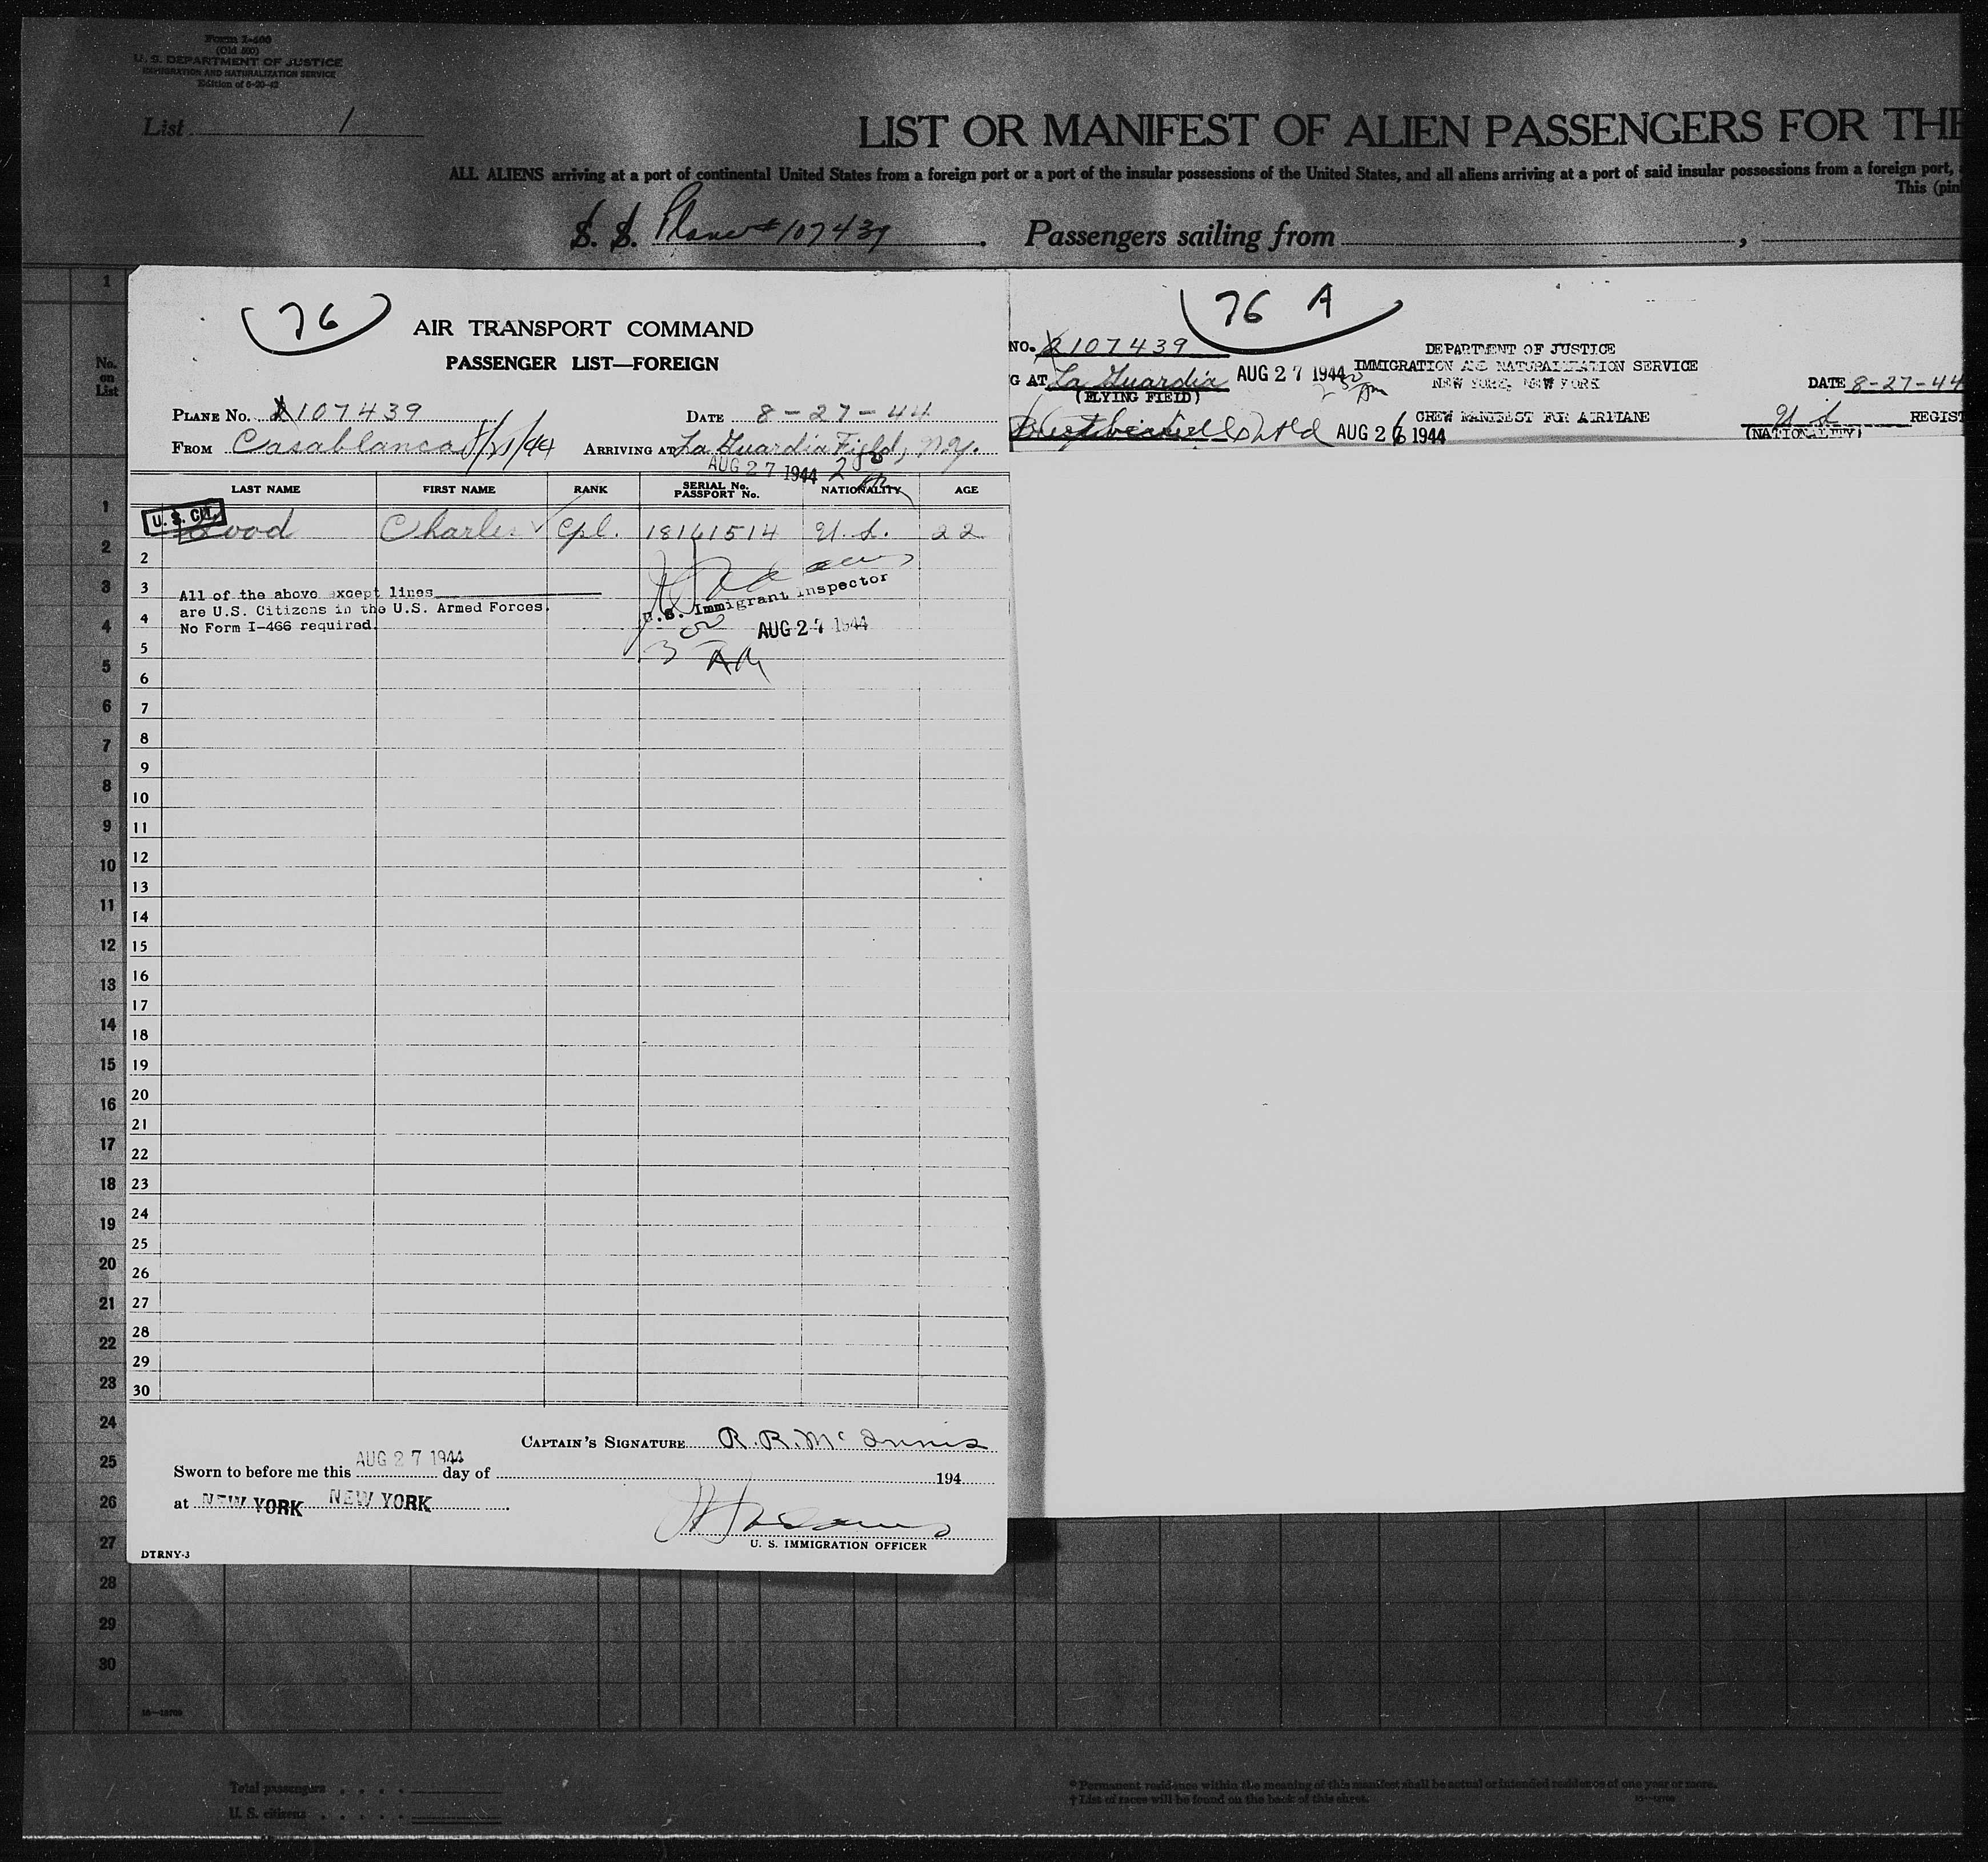 Form I-400
(Old 500)
U. S. DEPARTMENT OF JUSTICE
IMMIGRATION AND NATURALIZATION SERVICE
Edition of 6-20-42
List 1
LIST OR MANIFEST OF ALIEN PASSENGERS FOR THE
ALL ALIENS arriving at a port of continental United States from a foreign port or a port of the insular possessions of the United States, and all aliens arriving at a port of said insular possessions from a foreign port,
This (pin
S. S. Plane # 107439 . Passengers sailing from ,
76
AIR TRANSPORT COMMAND
PASSENGER LIST—FOREIGN
PLANE No. 107439 DATE 8-27-44
FROM Casablanca ARRIVING AT La Guardia Field, N.Y.
AUG 27 1944
LAST NAME FIRST NAME RANK SERIAL No. PASSPORT No. NATIONALITY AGE
U. S. CIT.
Charles Cpl. 18161514 U. S. 22
All of the above except lines
are U.S. Citizens in the U.S. Armed Forces.
No Form I-466 required.
U.S. Immigrant Inspector
AUG 27 1944
1
2
3
4
5
6
7
8
9
10
11
12
13
14
15
16
17
18
19
20
21
22
23
24
25
26
27
28
29
30
CAPTAIN'S SIGNATURE R. R. McInnis
AUG 27 1944
Sworn to before me this day of 194
at NEW YORK NEW YORK .
U. S. IMMIGRATION OFFICER
DTRNY-3
76 A
NO. 107439
DEPARTMENT OF JUSTICE
IMMIGRATION AND NATURALIZATION SERVICE
NEW YORK, NEW YORK
G AT La Guardia AUG 27 1944 DATE 8-27-44
(FLYING FIELD)
CREW MANIFEST FOR AIRPLANE U S REGIST
AUG 26 1944 (NATIONALITY)
1
No. on List
1
2
3
4
5
6
7
8
9
10
11
12
13
14
15
16
17
18
19
20
21
22
23
24
25
26
27
28
29
30
Total passengers . . . .
U. S. citizens . . . . .
* Permanent residence within the meaning of this manifest shall be actual or intended residence of one year or more.
† List of races will be found on the back of this sheet.